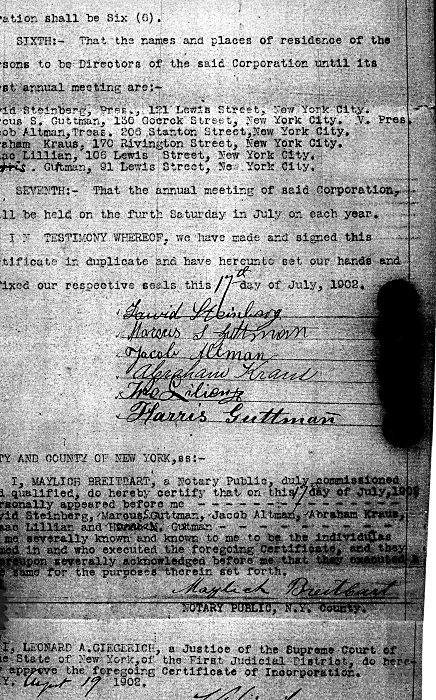 ration shall be Six (6).
SIXTH:- That the names and places of residence of the
rsons to be Directors of the said Corporation until its
rst annual meeting are:-
vid Steinberg, Pres., 121 Lewis Street, New York City.
rcus S. Guttman, 136 Goerck Street, New York City. V. Pres.
cob Altman,Treas. 206 Stanton Street,New York City.
raham Kraus, 170 Rivington Street, New York City.
aac Lillian, 108 Lewis Street, New York City.
. Guttman, 91 Lewis Street, New York City.
SEVENTH:- That the annual meeting of said Corporation,
ll be held on the furth Saturday in July on each year.
IN TESTIMONY WHEREOF, we have made and signed this
tificate in duplicate and have hereunto set our hands and
fixed our respective seals this 17th day of July, 1902.
David Steinberg
Marcus S Guttman
Jacob Altman
Abraham Kraus
Harris Guttman
TY AND COUNTY OF NEW YORK,ss:-
I, MAYLICH BREITBART, a Notary Public, duly commissioned
d qualified, do hereby certify that on this 17 day of July,1902
rsonally appeared before me
vid Steinberg, Marcus Gutman, Jacob Altman, Abraham Kraus,
aac Lillian and Gutman
me severally known and known to me to be the individuals
med in and who executed the foregoing Certificate, and they
ereupon severally acknowledged before me that they executed
e same for the purposes therein set forth.
Maylich Breitbart
NOTARY PUBLIC, N.Y. County.
I, LEONARD A.GIEGERICH, a Justice of the Supreme Court of
e State of New York,of the First Judicial District, do here-
approve the foregoing Certificate of Incorporation.
Y. August 19 1902.